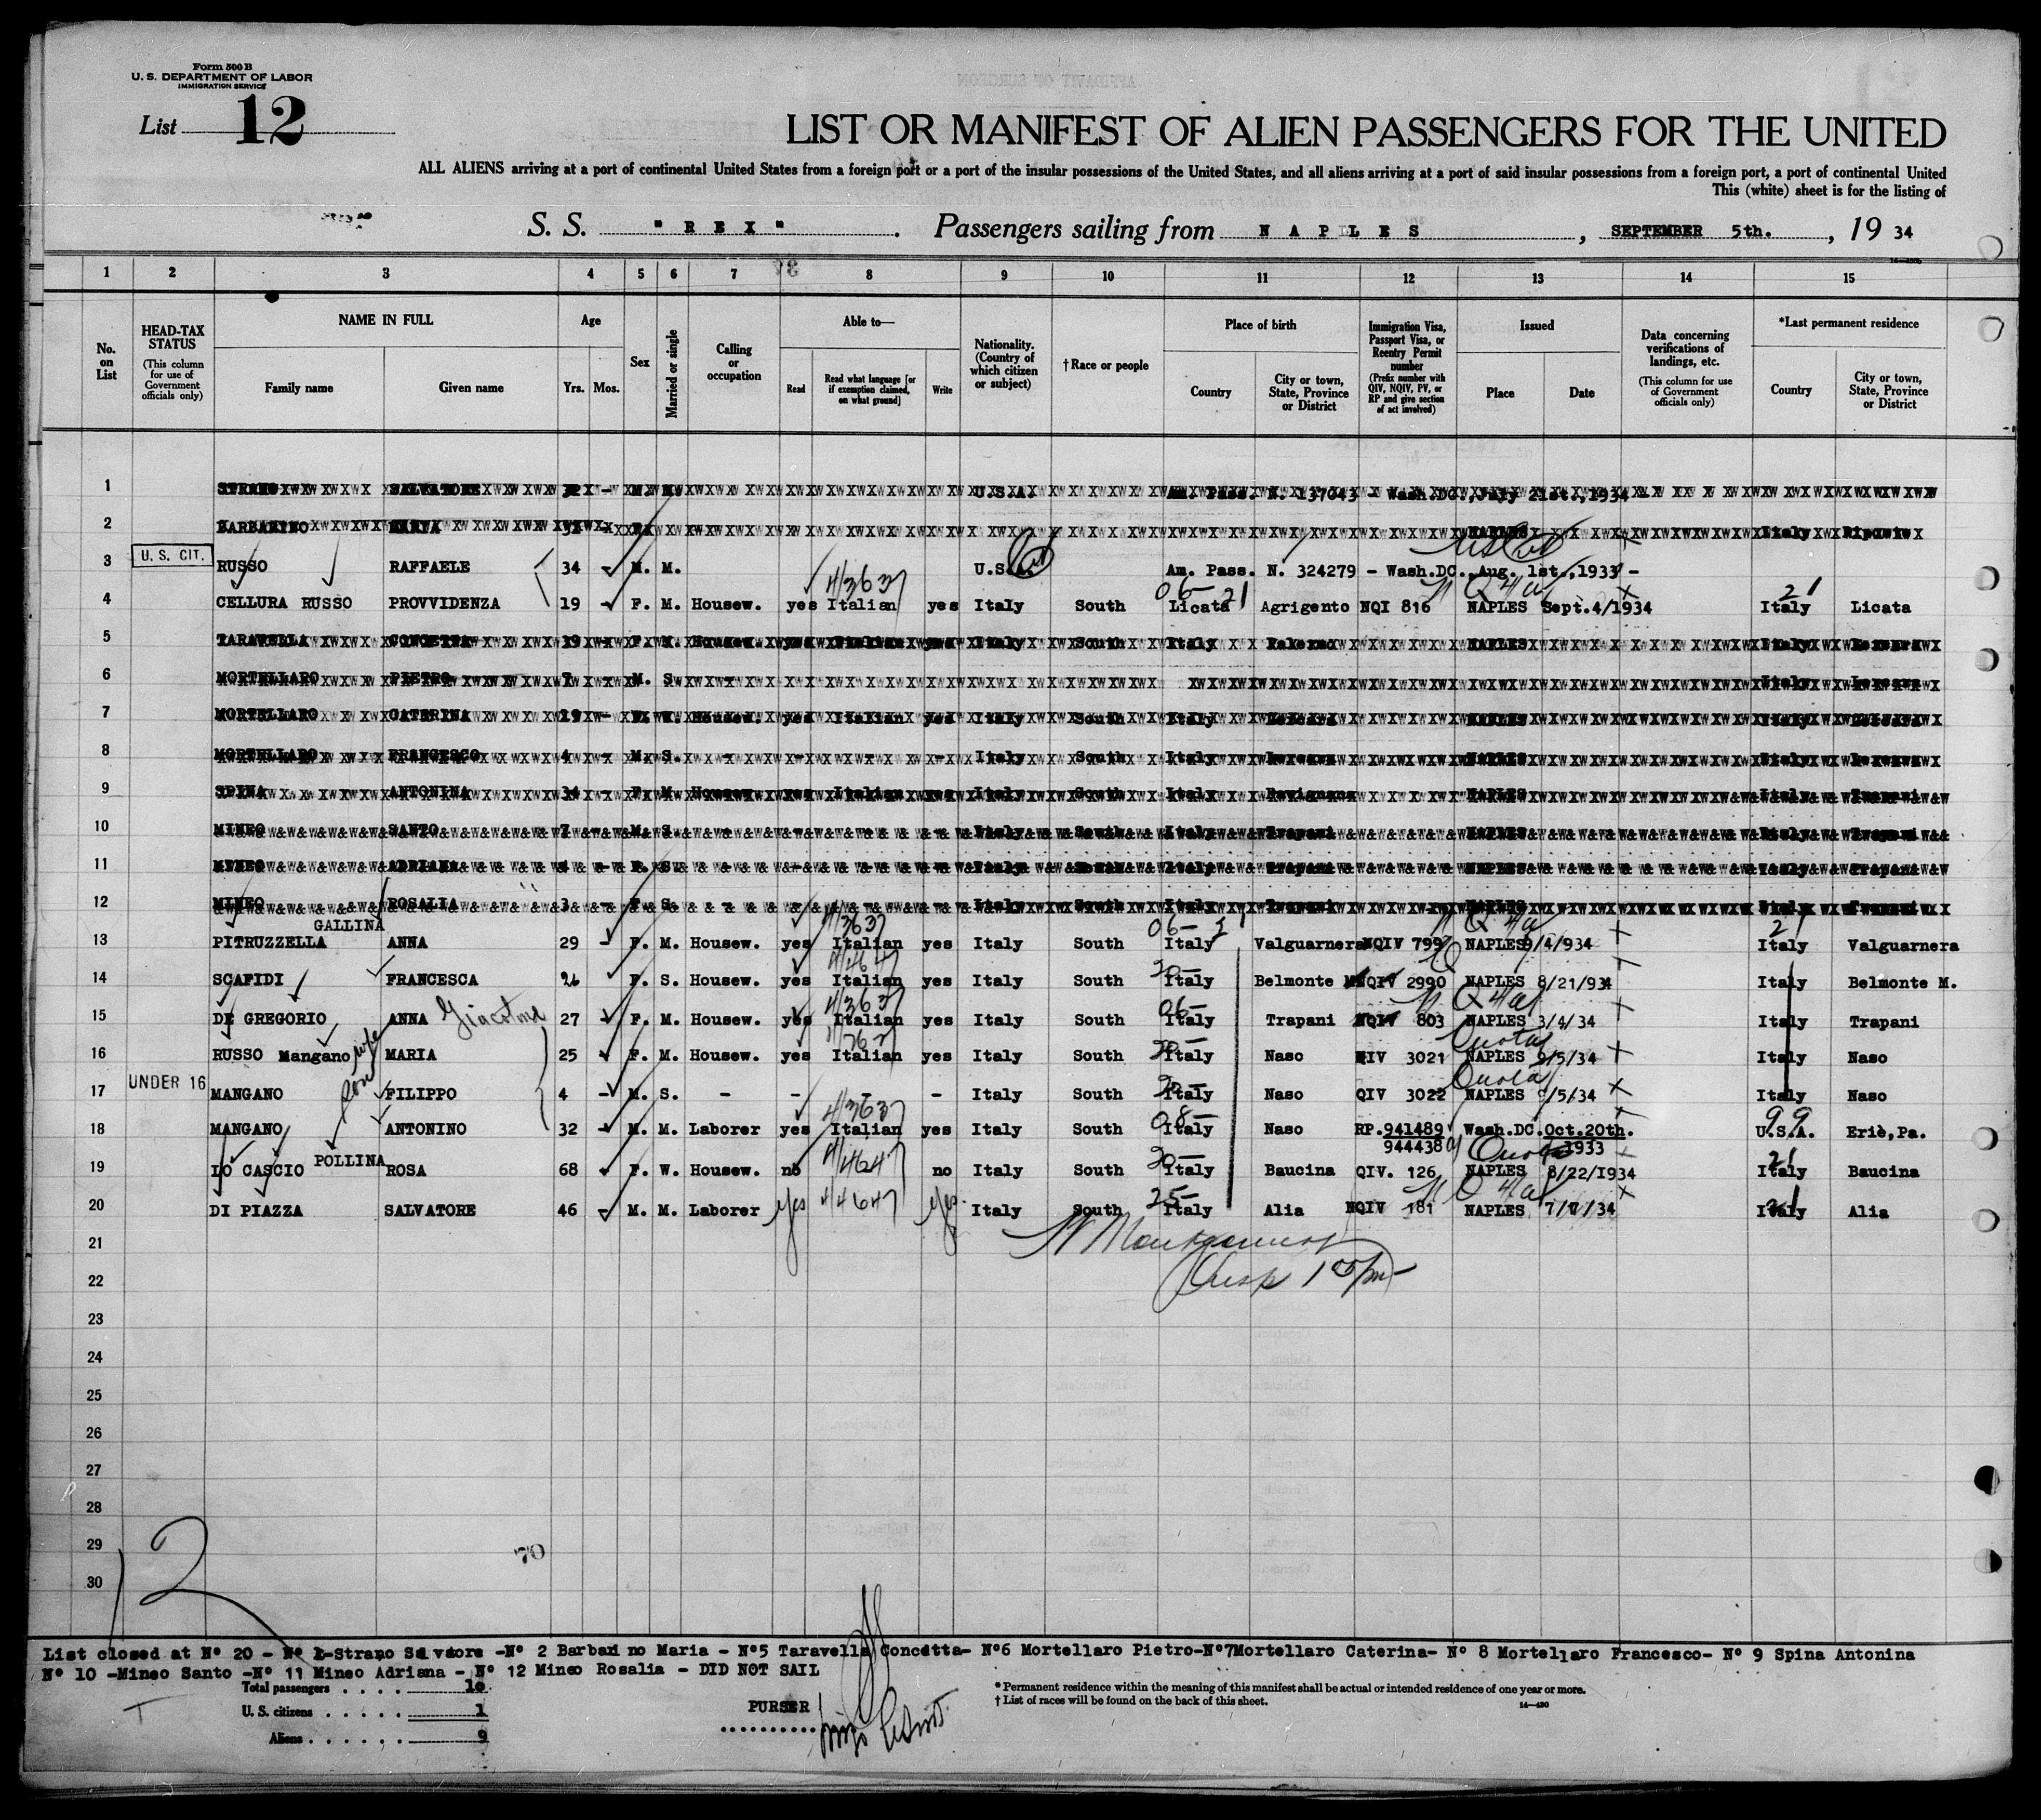 Form 500 B
U. S. DEPARTMENT OF LABOR
IMMIGRATION SERVICE
List 12
LIST OR MANIFEST OF ALIEN PASSENGERS FOR THE UNITED
ALL ALIENS arriving at a port of continental United States from a foreign port or a port of the insular possessions of the United States, and all aliens arriving at a port of said insular possessions from a foreign port, a port of continental United
This (white) sheet is for the listing of
S. S. "REX". Passengers sailing from NAPLES, SEPTEMBER 5th., 1934
1 2 3 4 5 6 7 8 9 10 11 12 13 14 15
No. on List
HEAD-TAX STATUS (This column for use of Government officials only)
NAME IN FULL Family name Given name
Age Yrs. Mos.
Sex
Married or single
Calling or occupation
Able to— Read Read what language [or if exemption claimed, on what ground] Write
Nationality. (Country of which citizen or subject)
†Race or people
Place of birth Country City or town, State, Province or District
Immigration Visa, Passport Visa, or Reentry Permit number (Prefix number with QIV, NQIV, PV, or RP and give section of act involved)
Issued Place Date
Data concerning verifications of landings, etc. (This column for use of Government officials only)
*Last permanent residence Country City or town, State, Province or District
1 STRANO SALVATORE U.S.A. Am. Pass. N. 137043 - Wash.DC., July 21st., 1934
2 BARBARINO MARIA NAPLES Italy
3 U. S. CIT. RUSSO RAFFAELE 34 - M. M. U.S.A. Am. Pass. N. 324279 - Wash.DC.,Aug. 1st.,1933 -
4 CELLURA RUSSO PROVVIDENZA 19 - F. M. Housew. yes Italian yes Italy South Licata Agrigento NQI 816 NAPLES Sept.4/1934 Italy Licata
5 TARAVELLA CONCETTA 39 - F. M. Housew. yes Italian yes Italy South Italy Palermo NAPLES Italy
6 MORTELLARO PIETRO 7 - M. S. Italy
7 MORTELLARO CATERINA Housew. yes Italian yes Italy South Italy NAPLES Italy
8 MORTELLARO FRANCESCO 4 - M. S. - Italy South Italy NAPLES Italy
9 SPINA ANTONINA 34 - F. M. Housew. yes Italian yes Italy South Italy NAPLES Italy Trapani
10 MINEO SANTO 7 - M. S. Italy South Italy Trapani NAPLES Italy Trapani
11 MINEO ADRIANA F. S. Italy South Italy Trapani NAPLES Italy Trapani
12 MINEO ROSALIA 3 - F. S. Italy South Italy Trapani NAPLES Italy Trapani
13 PITRUZZELLA GALLINA ANNA 29 - F. M. Housew. yes Italian yes Italy South Italy Valguarnera NQIV 799 NAPLES 9/4/934 Italy Valguarnera
14 SCAFIDI FRANCESCA 26 F. S. Housew. yes Italian yes Italy South Italy Belmonte M. QIV 2990 NAPLES 8/21/934 Italy Belmonte M.
15 DE GREGORIO ANNA Giacoma 27 F. M. Housew. yes Italian yes Italy South Italy Trapani NQIV 803 NAPLES 3/4/34 Italy Trapani
16 RUSSO Mangano wife MARIA 25 F. M. Housew. yes Italian yes Italy South Italy Naso QIV 3021 NAPLES 9/5/34 Italy Naso
17 UNDER 16 MANGANO son FILIPPO 4 - M. S. - - - Italy South Italy Naso QIV 3022 NAPLES 9/5/34 Italy Naso
18 MANGANO ANTONINO 32 - M. M. Laborer yes Italian yes Italy South Italy Naso RP.941489 944438 Wash.DC.Oct.20th. 1933 U.S.A. Erie,Pa.
19 LO CASCIO POLLINA ROSA 68 F. W. Housew. no no Italy South Italy Baucina QIV. 126 NAPLES 8/22/1934 Italy Baucina
20 DI PIAZZA SALVATORE 46 M. M. Laborer yes yes Italy South Italy Alia NQIV 181 NAPLES 7/7/34 Italy Alia
21
22
23
24
25
26
27
28
29
30
12
70
List closed at N° 20 - N° 1-Strano Salvatore -N° 2 Barbarino Maria - N°5 Taravella Concetta- N°6 Mortellaro Pietro-N°7Mortellaro Caterina- N° 8 Mortellaro Francesco- N° 9 Spina Antonina
N° 10 -Mineo Santo -N° 11 Mineo Adriana - N° 12 Mineo Rosalia - DID NOT SAIL
Total passengers . . . . 10
U. S. citizens . . . . . 1
Aliens . . . . . . 9
PURSER
* Permanent residence within the meaning of this manifest shall be actual or intended residence of one year or more.
† List of races will be found on the back of this sheet.
14—430